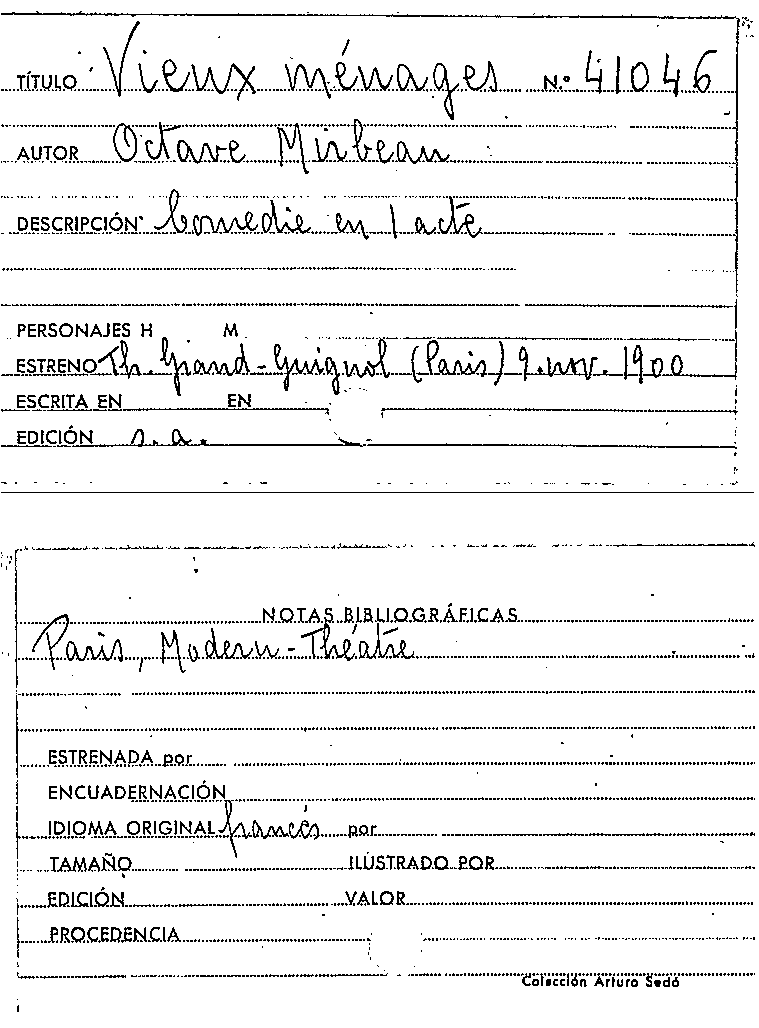 TÍTULO Vieux ménages N.º 41046
AUTOR Octave Mirbeau
DESCRIPCIÓN Comedie en 1 acte
PERSONAJES H M
ESTRENO Th. Grand-Guignol (Paris) 9. nov. 1900
ESCRITA EN EN
EDICIÓN s. a.
NOTAS BIBLIOGRÁFICAS
Paris, Modern-Théatre
ESTRENADA por
ENCUADERNACIÓN
IDIOMA ORIGINAL francés por
TAMAÑO ILUSTRADO POR
EDICIÓN VALOR
PROCEDENCIA
Colección Arturo Sedó